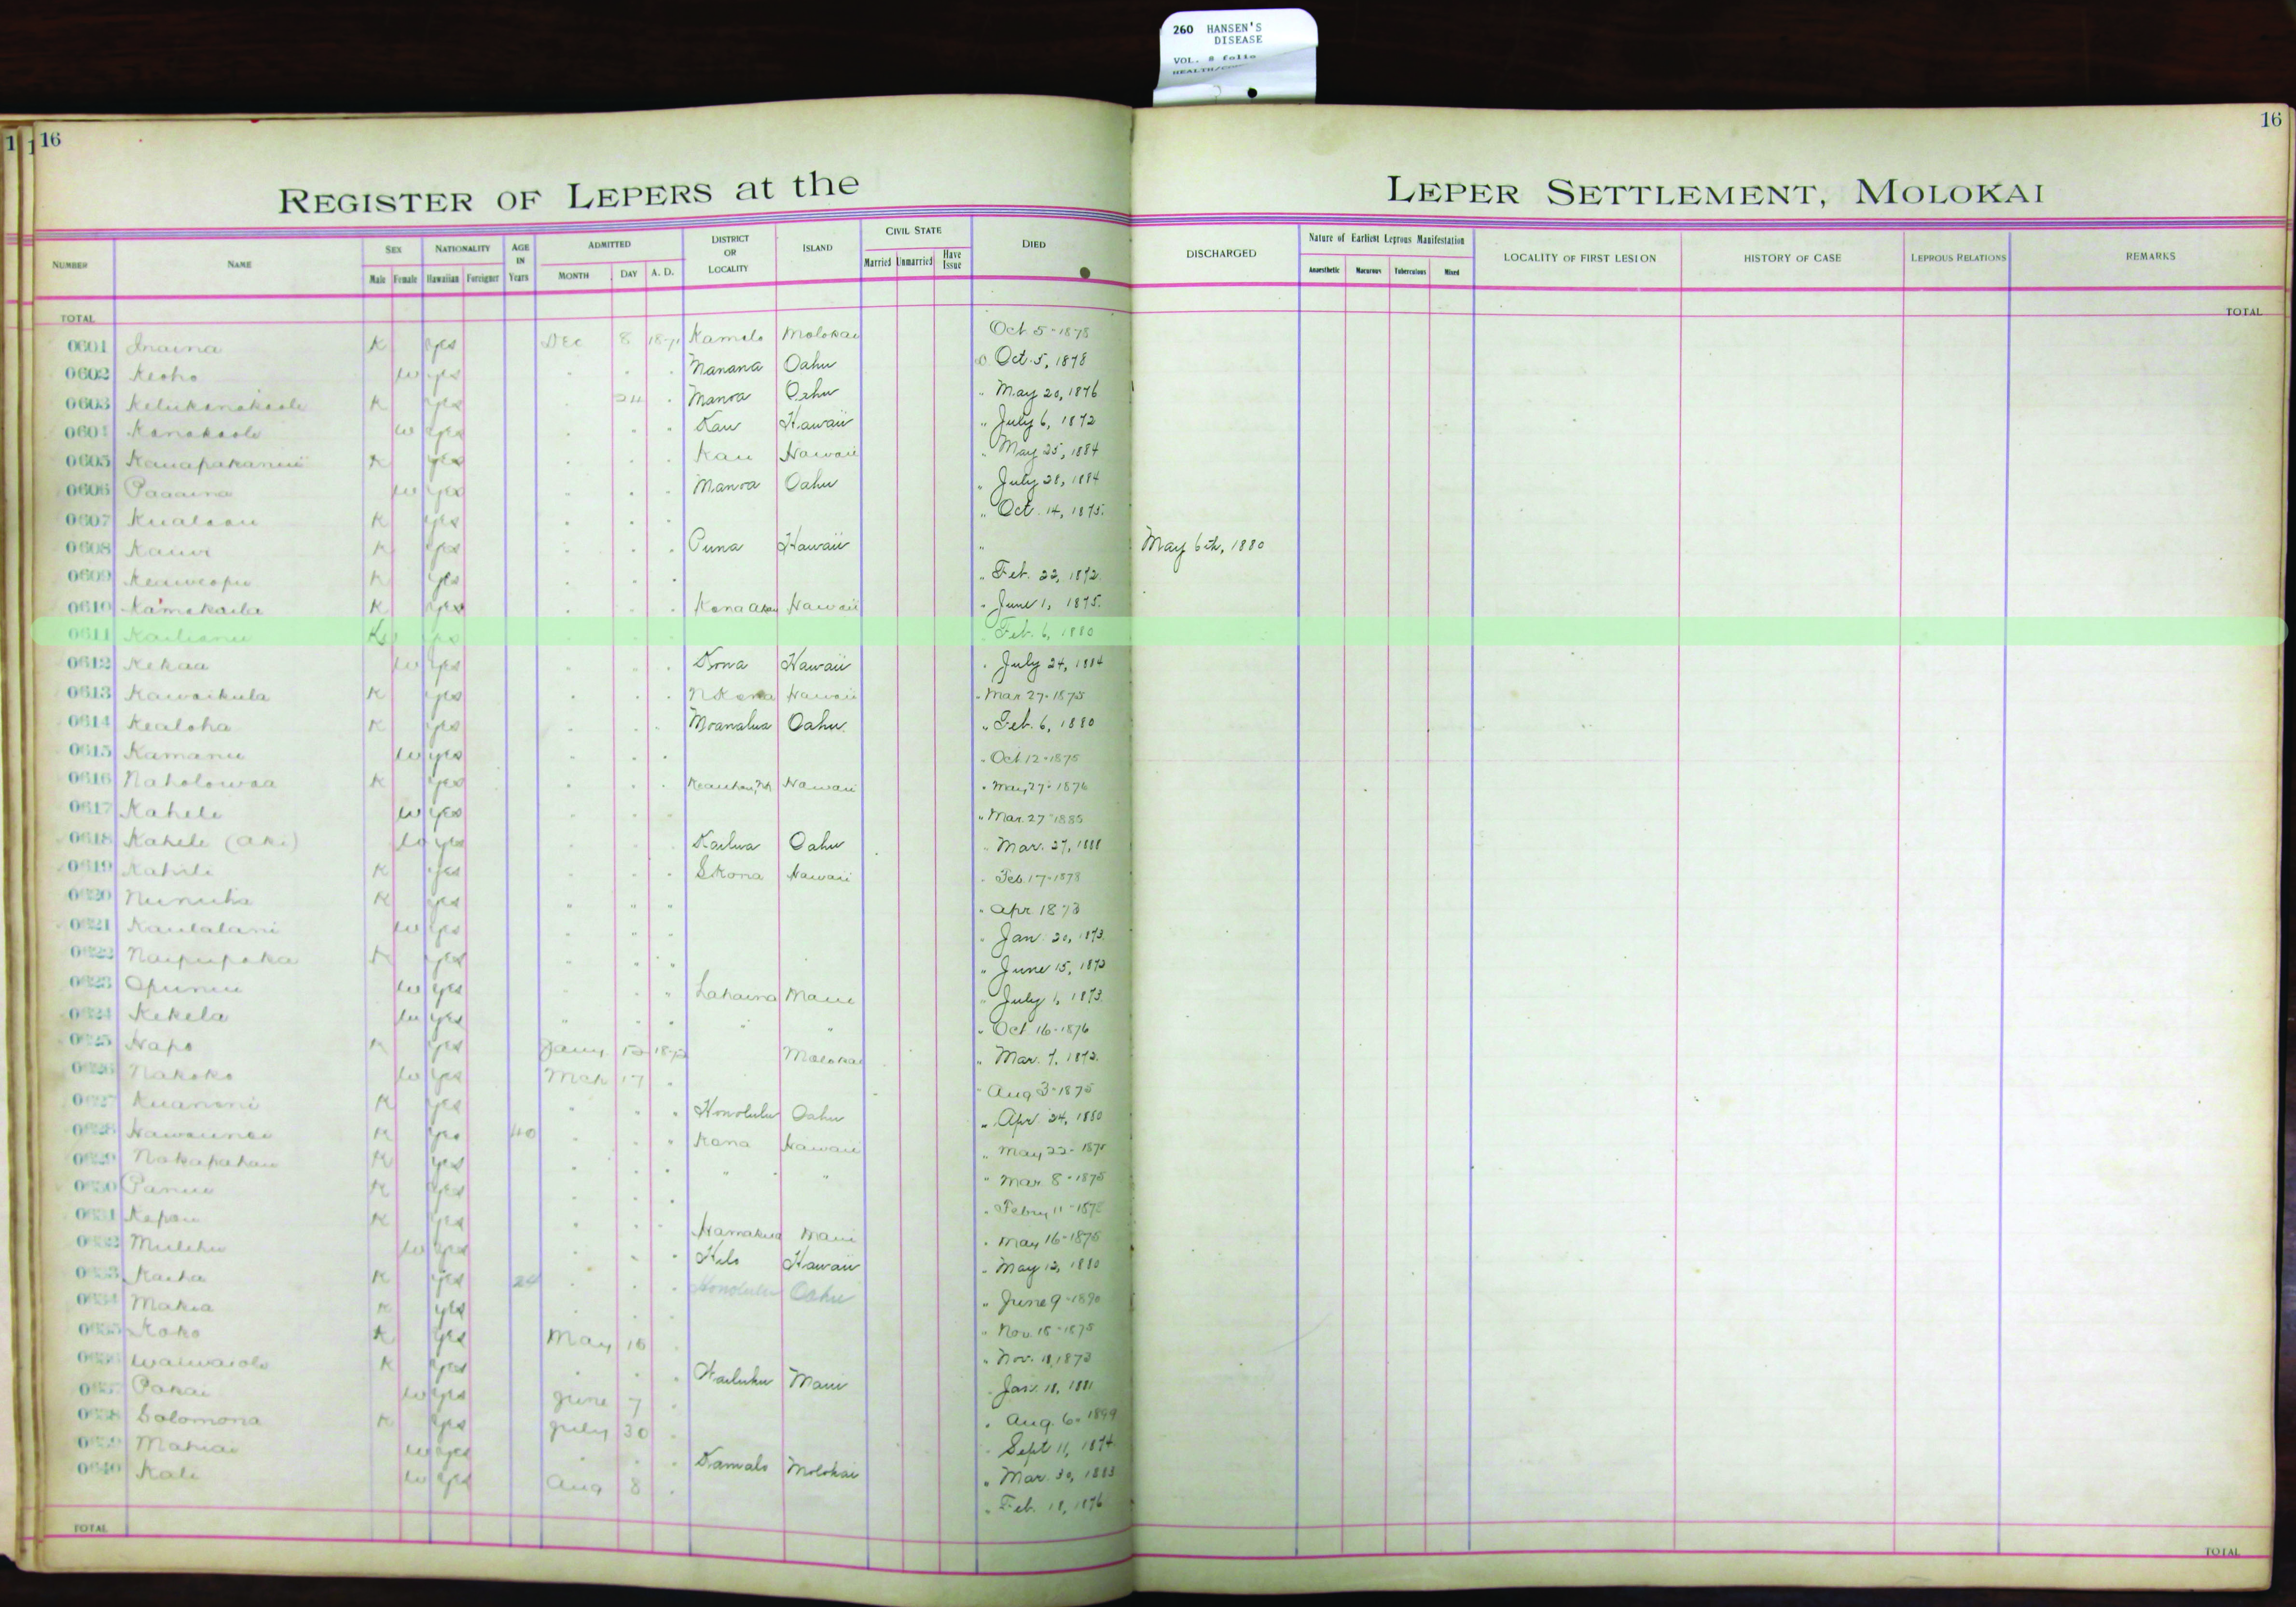 260 HANSEN'S
DISEASE
VOL. 8 folio
16
16
REGISTER OF LEPERS at the LEPER SETTLEMENT, MOLOKAI
NUMBER NAME SEX NATIONALITY AGE IN Years ADMITTED DISTRICT OR LOCALITY ISLAND CIVIL STATE DIED DISCHARGED Nature of Earliest Leprous Manifestation LOCALITY OF FIRST LESION HISTORY OF CASE LEPROUS RELATIONS REMARKS
Male Female Hawaiian Foreigner MONTH DAY A. D. Married Unmarried Have Issue Anaesthetic Macurous Tuberculous Mixed
TOTAL TOTAL
0601 Inaina K yes Dec 8 1871 Kamalo Molokai Oct 5-1878
0602 Keoho w yes Manana Oahu Oct. 5, 1878
0603 K yes 24 Manoa Oahu " May 20, 1876
0604 Kanakaole w yes Kau Hawaii " July 6, 1872
0605 K yes Kau Hawaii " May 25, 1884
0606 Paaaina w yes Manoa Oahu " July 28, 1884
0607 Kualaau K yes " Oct. 14, 1875
0608 Kauwi K yes Puna Hawaii " May 6th, 1880
0609 Keaweopu K yes " Feb. 22, 1872
0610 Kamakaila K yes Kona Akau Hawaii " June 1, 1875
0611 Kailianu K yes Feb. 6, 1880
0612 Kekaa w yes Kona Hawaii " July 24, 1884
0613 Kawaikula K yes N Kona Hawaii " Mar 27-1875
0614 Kealoha K yes Moanalua Oahu " Feb. 6, 1880
0615 Kamanu w yes " Oct 12-1875
0616 Naholowaa K yes Hawaii " May 27-1876
0617 Kahele w yes " Mar. 27 1885
0618 Kahele (aki) w yes Kailua Oahu " Mar. 27, 1888
0619 Kahili K yes S Kona Hawaii " Feb. 17-1878
0620 K yes " " " " Apr 1873
0621 Kaulalani w yes " Jan. 20, 1873
0622 Naipupaka K yes " June 15, 1873
0623 Opunui w yes Lahaina Maui " July 1, 1873
0624 Kekela w yes " " " Oct 16-1876
0625 Hapo K yes Jany 12 1872 Molokai " Mar. 7, 1872
0626 Nakoko w yes Mch 17 " Aug 3-1875
0627 Kuanoni K yes Honolulu Oahu " Apr. 24, 1880
0628 K yes 40 Kona Hawaii " May 22-1875
0629 Nakapahau K yes " " " Mar. 8-1875
0630 Panui K yes " Febry 11-1878
0631 Kepau K yes Hamakua Maui " May 16-1875
0632 Mulehu w yes Hilo Hawaii " May 12, 1880
0633 Kaiha K yes 24 Honolulu Oahu " June 9-1890
0634 Makia K yes " Nov. 18-1875
0635 Koko K yes May 10 " Nov. 11, 1873
0636 Waiwaiole K yes Wailuku Maui " Jan. 18, 1881
0637 Pakai w yes June 7 " Aug. 6. 1899
0638 Solomona K yes July 30 " Sept 11, 1874
0639 Mahiai w yes Kamalo Molokai " Mar. 30, 1883
0640 Kali w yes Aug 8 " Feb. 18, 1876
TOTAL TOTAL